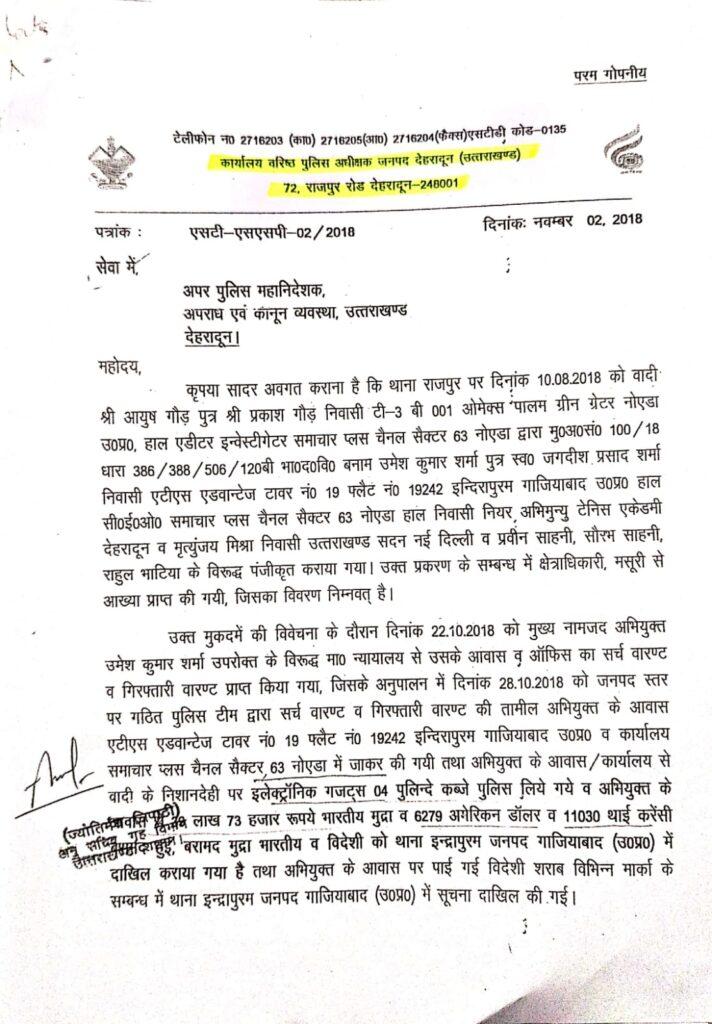 परम गोपनीय
टेलीफोन न0 2716203 (का0) 2716205(आ0) 2716204(फैक्स)एसटीडी कोड-0135
कार्यालय वरिष्ठ पुलिस अधीक्षक जनपद देहरादून (उत्तराखण्ड)
72, राजपुर रोड देहरादून-248001
पत्रांक : एसटी-एसएसपी-02/2018 दिनांकः नवम्बर 02, 2018
सेवा में,
अपर पुलिस महानिदेशक,
अपराध एवं कानून व्यवस्था, उत्तराखण्ड
देहरादून।
महोदय,
कृपया सादर अवगत कराना है कि थाना राजपुर पर दिनांक 10.08.2018 को वादी
श्री आयुष गौड़ पुत्र श्री प्रकाश गौड़ निवासी टी-3 बी 001 ओमेक्स पालम ग्रीन ग्रेटर नोएडा
उ0प्र0, हाल एडीटर इन्वेस्टीगेटर समाचार प्लस चैनल सैक्टर 63 नोएडा द्वारा मु0अ0सं0 100/18
धारा 386/388/506/120बी भा0द0वि0 बनाम उमेश कुमार शर्मा पुत्र स्व0 जगदीश प्रसाद शर्मा
निवासी एटीएस एडवान्टेज टावर नं0 19 फ्लैट नं0 19242 इन्दिरापुरम गाजियाबाद उ0प्र0 हाल
सी0ई0ओ0 समाचार प्लस चैनल सैक्टर 63 नोएडा हाल निवासी नियर अभिमुन्यु टेनिस एकेडमी
देहरादून व मृत्युंजय मिश्रा निवासी उत्तराखण्ड सदन नई दिल्ली व प्रवीन साहनी, सौरभ साहनी,
राहुल भाटिया के विरूद्ध पंजीकृत कराया गया। उक्त प्रकरण के सम्बन्ध में क्षेत्राधिकारी, मसूरी से
आख्या प्राप्त की गयी, जिसका विवरण निम्नवत् है।
उक्त मुकदमें की विवेचना के दौरान दिनांक 22.10.2018 को मुख्य नामजद अभियुक्त
उमेश कुमार शर्मा उपरोक्त के विरूद्ध मा0 न्यायालय से उसके आवास व ऑफिस का सर्च वारण्ट
व गिरफ्तारी वारण्ट प्राप्त किया गया, जिसके अनुपालन में दिनांक 28.10.2018 को जनपद स्तर
पर गठित पुलिस टीम द्वारा सर्च वारण्ट व गिरफ्तारी वारण्ट की तामील अभियुक्त के आवास
एटीएस एडवान्टेज टावर नं0 19 फ्लैट नं0 19242 इन्दिरापुरम गाजियाबाद उ0प्र0 व कार्यालय
समाचार प्लस चैनल सैक्टर 63 नोएडा में जाकर की गयी तथा अभियुक्त के आवास/कार्यालय से
वादी के निशानदेही पर इलेक्ट्रॉनिक गजट्स 04 पुलिन्दे कब्जे पुलिस लिये गये व अभियुक्त के
लाख 73 हजार रूपये भारतीय मुद्रा व 6279 अमेरिकन डॉलर व 11030 थाई करेंसी
बरामद मुद्रा भारतीय व विदेशी को थाना इन्द्रापुरम जनपद गाजियाबाद (उ0प्र0) में
दाखिल कराया गया है तथा अभियुक्त के आवास पर पाई गई विदेशी शराब विभिन्न मार्का के
सम्बन्ध में थाना इन्द्रापुरम जनपद गाजियाबाद (उ0प्र0) में सूचना दाखिल की गई।
अनु सचिव गृह विभाग